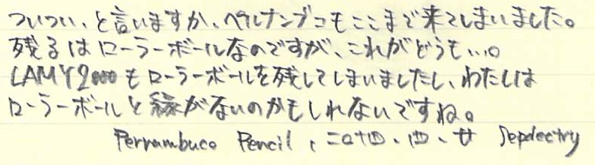 ついつい、と言いますか、ペルナンブコもここまで来てしまいました。
残るはローラーボールなのですが、これがどうも…。
LAMY2000もローラーボールを残してしまいましたし、わたしは
ローラーボールと縁がないのかもしれないですね。
Pernambuco Pencil, 二〇十四、四、廿